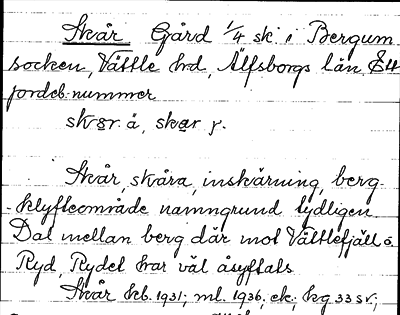 Skår Gård 1/4 sk i Bergum
socken, Vättle hrd, Älfsborgs län, 
jordeb. nummer
skår å, skar y.
Skår, skåra, inskärning, berg-
-klyfteområde namngrund tydligen
Dal mellan berg där mot Vättlefjäll o.
Ryd, Rydet har väl åsyftats
Skår kb. 1931; ml. 1936, ek; hg 33 sv;